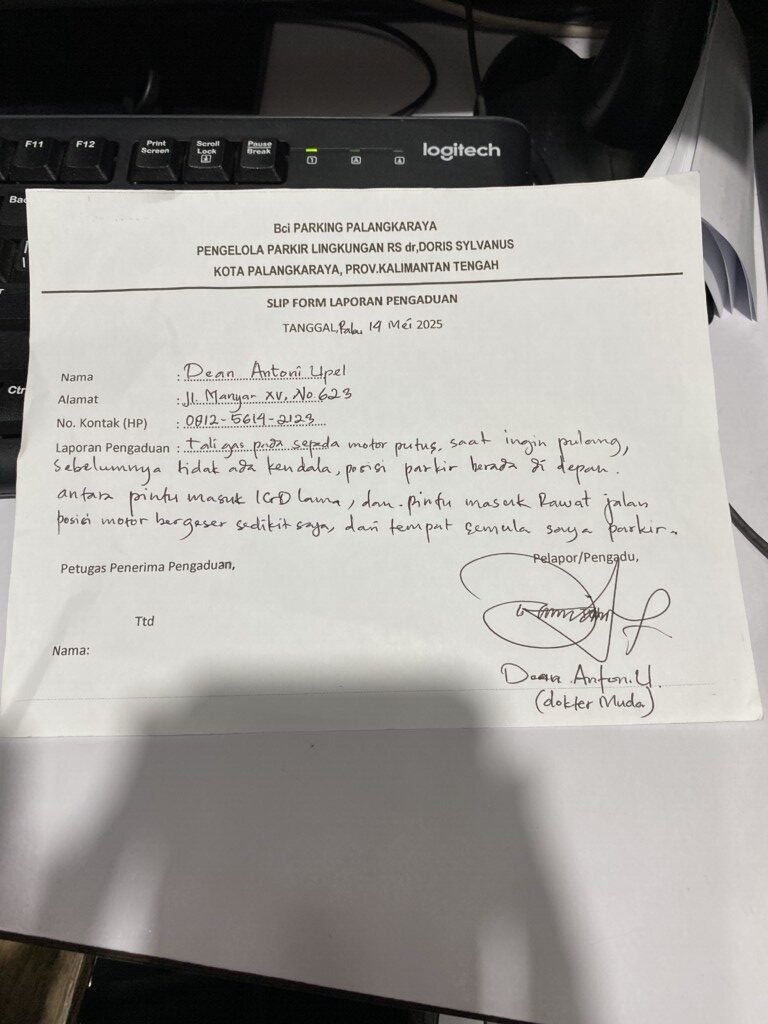 F11 F12 Print Screen Scroll Lock Pause Break 1 A logitech
Bac
Ctr
Bci PARKING PALANGKARAYA
PENGELOLA PARKIR LINGKUNGAN RS dr,DORIS SYLVANUS
KOTA PALANGKARAYA, PROV.KALIMANTAN TENGAH
SLIP FORM LAPORAN PENGADUAN
TANGGAL, Rabu, 14 Mei 2025
Nama : Dean Antoni Upel
Alamat : Jl. Manyar XV, No.623
No. Kontak (HP) : 0812-5614-2123
Laporan Pengaduan : tali gas pada sepeda motor putus, saat ingin pulang,
sebelumnya tidak ada kendala, posisi parkir berada di depan.
antara pintu masuk IGD lama, dan pintu masuk Rawat jalan
posisi motor bergeser sedikit saya, dari tempat semula saya parkir.
Petugas Penerima Pengaduan, Pelapor/Pengadu,
Ttd
Nama:
Dean Antoni.U.
(dokter Muda)